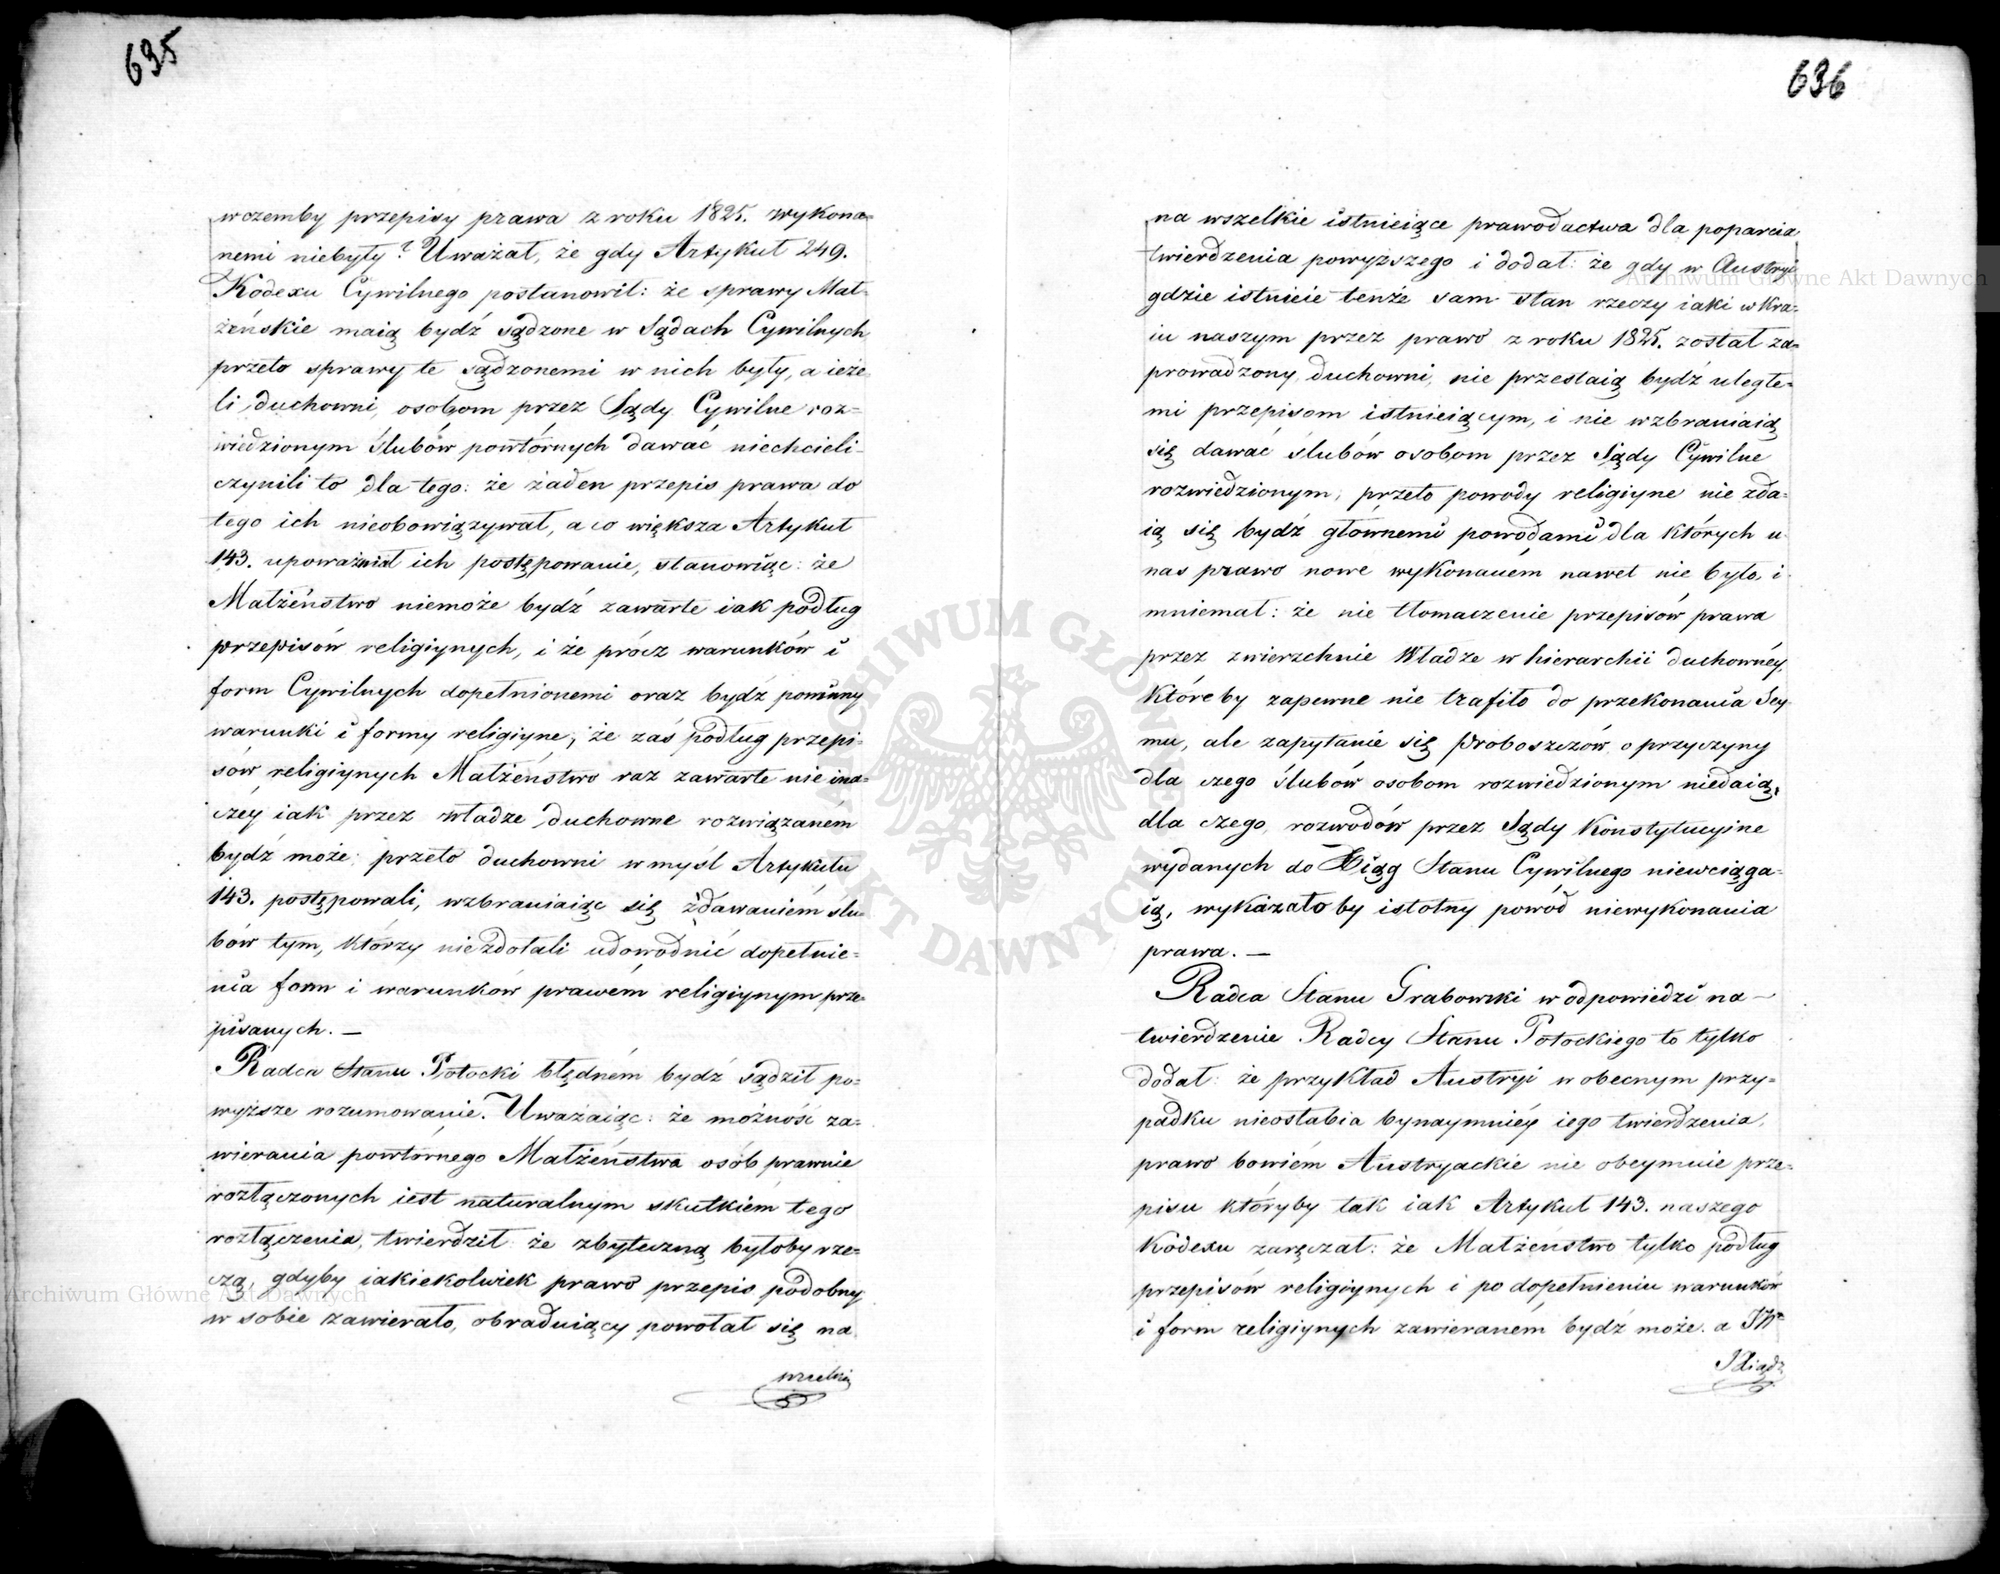 635
wczemby przepisy prawa z roku 1825. wykona=
nemi niebyły? Uważał, że gdy Artykuł 249.
Kodexu Cywilnego postanowił: że sprawy Mał-
żeńskie maią bydź sądzone w Sądach Cywilnych
przeto sprawy te sądzonemi w nich były, a ieże-
li duchowni, osobom przez Sądy Cywilne roz=
wiedzionym Ślubów powtórnych dawać niechcieli
czynili to dla tego: że żaden przepis prawa do
tego ich nieobowiązywał, a co większa Artykuł
143. upoważniał ich postępowanie, stanowiąc: że
Małżeństwo niemoże bydź zawarte iak podług
przepisów religiynych, i że prócz warunków i
form Cywilnych dopełnionemi oraz bydź powinny
warunki i formy religiyne; że zaś podług przepi-
sów religiynych Małżeństwo raz zawarte nie ina=
czey iak przez władze duchowne rozwiązaném
bydź może; przeto duchowni w myśl Artykułu
143. postępowali, wzbraniaiąc się zdawaniém ślu=
bów tym, którzy niezdołali udowodnić dopełnie=
nia form i warunków prawém religiynym prze=
pisanych. —
Radca Stanu Potocki błędném bydź sądził po=
wyższe rozumowanie. Uważaiąc: że możność za=
wierania powtórnego Małżeństwa osób prawnie
rozłączonych iest naturalnym skutkiem tego
rozłączenia, twierdził: że zbyteczną byłoby rze=
czą, gdyby iakiekolwiek prawo przepis podobny
w sobie zawierało, obraduiący powołał się na
wszelkie
636
na wszelkie istnieiące prawodactwa dla poparcia
twierdzenia powyższego i dodał: że gdy w Austryi
gdzie istnieie tenże sam stan rzeczy iaki w kra-
iu naszym przez prawo z roku 1825. został za=
prowadzony, duchowni, nie przestaią bydź uległe=
mi przepisom istnieiącym, i nie wzbraniaią
się dawać ślubów osobom przez Sądy Cywilne
rozwiedzionym; przeto powody religiyne nie zda=
ią się bydź głównemi powodami dla których u
nas prawo nowe wykonaném nawet nie było, i
mniemał: że nie tłomaczenie przepisów prawa
przez zwierzchnie Władze w hierarchii duchownéy,
któreby zapewne nie trafiło do przekonania Sey
mu, ale zapytanie się Proboszczów o przyczyny
dla czego Ślubów osobom rozwiedzionym niedaią,
dla czego, rozwodów przez Sądy Konstytucyine
wydanych do Xiąg Stanu Cywilnego niewciąga=
ią, wykazałoby istotny powód niewykonania
prawa. —
Radca Stanu Grabowski w odpowiedzi na —
twierdzenie Radcy Stanu Potockiego to tylko
dodał: że przykład Austryi w obecnym przy=
padku nieosłabia bynaymniéy iego twierdzenia,
prawo bowiém Austryackie nie obeymuie prze=
pisu któryby tak iak Artykuł 143. naszego
Kodexu zaręczał: że Małżeństwo tylko podług
przepisów religiynych i po dopełnieniu warunków
i form religiynych zawieraném bydź może. a JW
JXiądz
ARCHIWUM GŁÓWNE AKT DAWNYCH
Archiwum Główne Akt Dawnych
Archiwum Główne Akt Dawnych